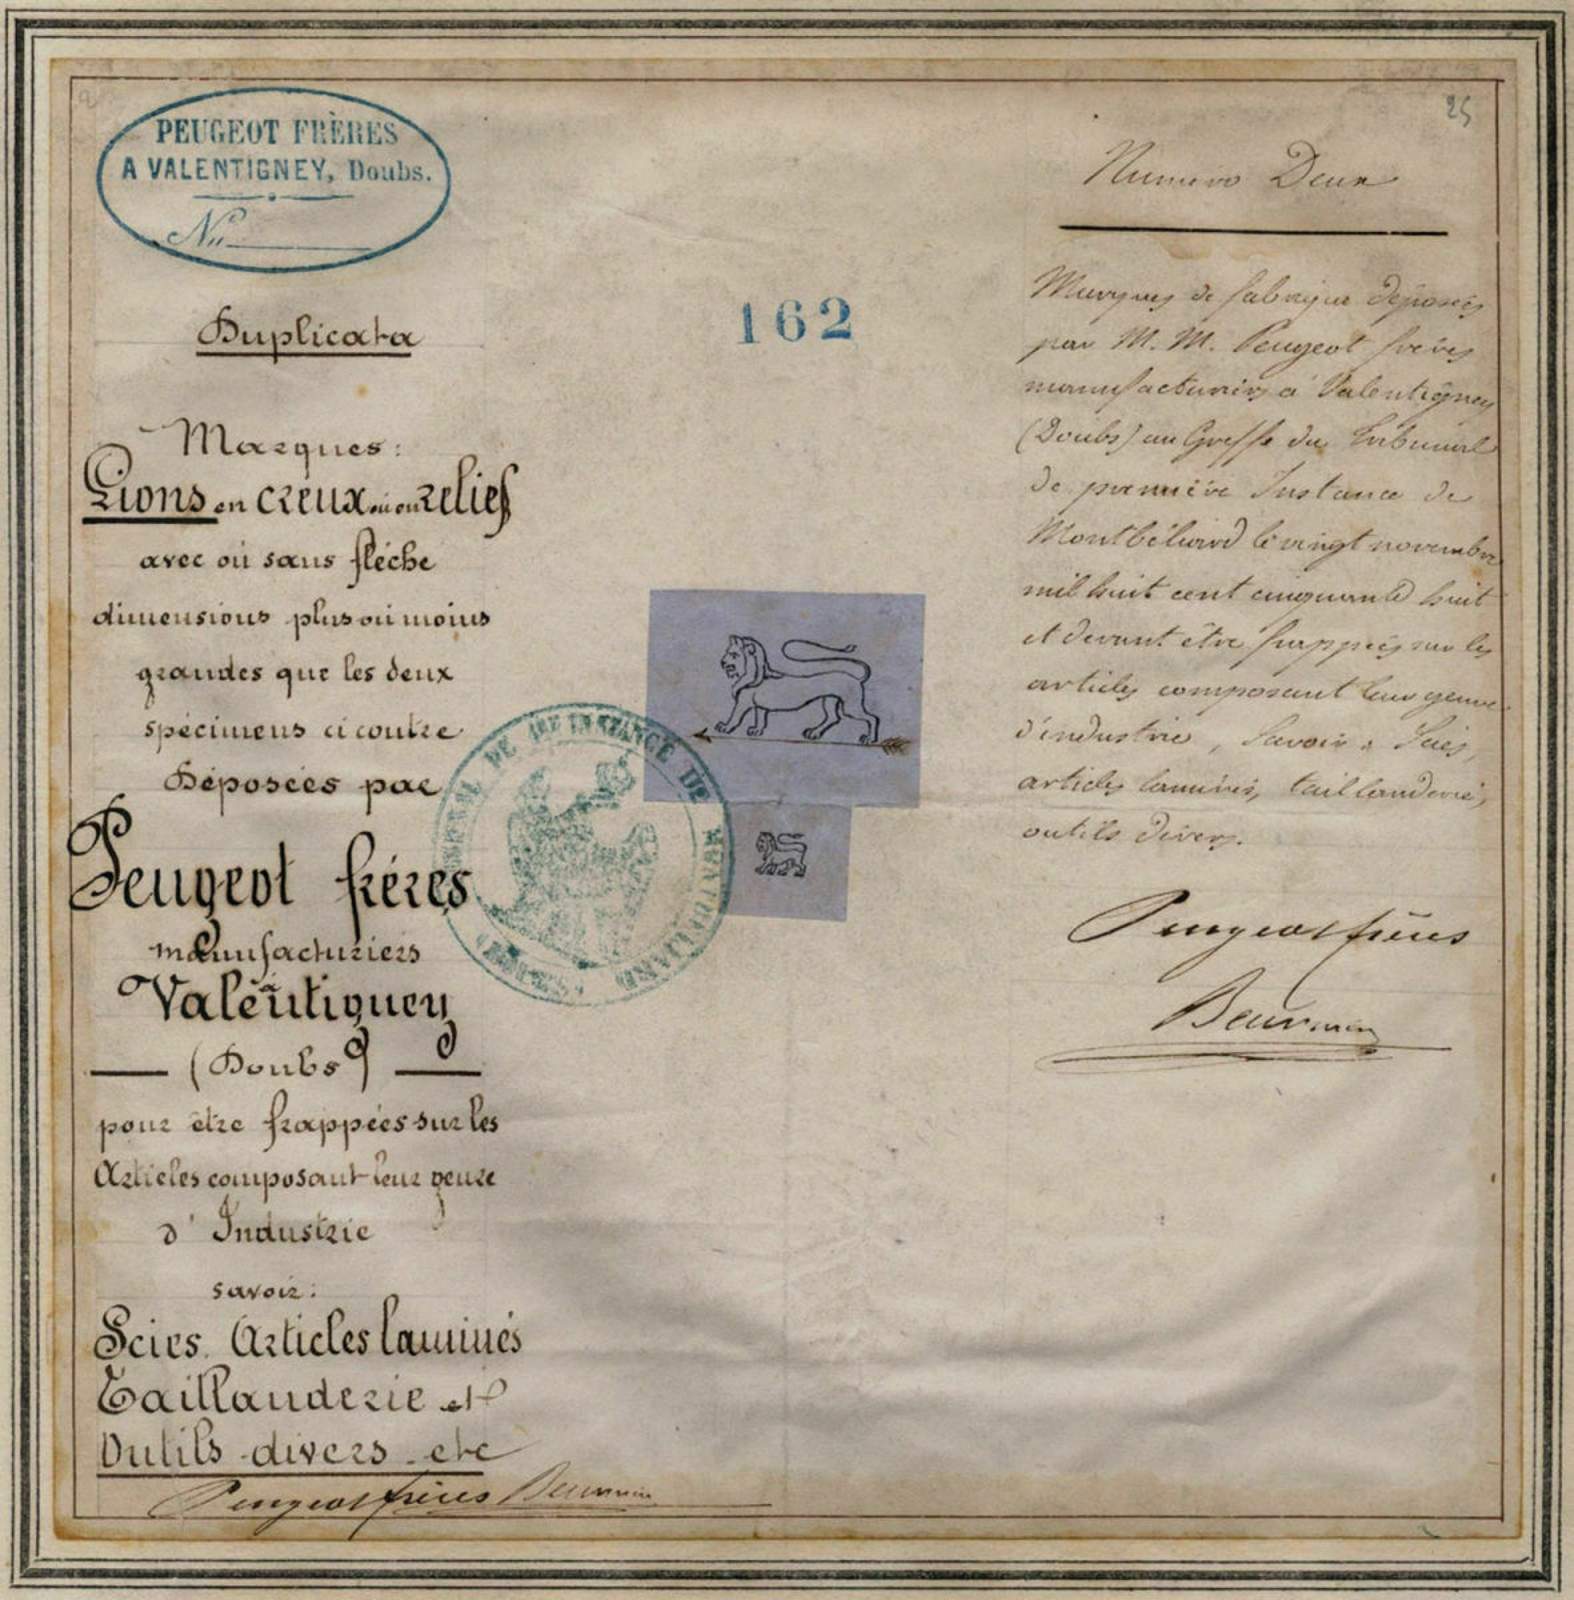 PEUGEOT FRÈRES
A VALENTIGNEY, Doubs.
No
Duplicata
Marques:
Lions en creux ou en relief
avec ou sans flèche
dimensions plus ou moins
grandes que les deux
spécimens ci contre
Déposées par
Peugeot fréres
manufacturiers
à
Valentigney
(Doubs)
pour être frappées sur les
Articles composant leur genre
d'Industrie
savoir:
Scies. Articles laminés
Taillanderie et
Outils divers. etc
Peugeot frères
162
TRIBUNAL DE 1ERE INSTANCE DE MONTBELIARD
25
Numéro Deux
Marques de fabrique déposées
par M. M. Peugeot frères
manufacturiers à Valentigney
(Doubs) au Greffe du Tribunal
de première Instance de
Montbéliard le vingt novembre
mil huit cent cinquante huit
et devant être frappées sur les
articles composant leur genre
d'industrie, Savoir: Scies,
articles laminés, taillanderie,
outils divers.
Peugeot frères